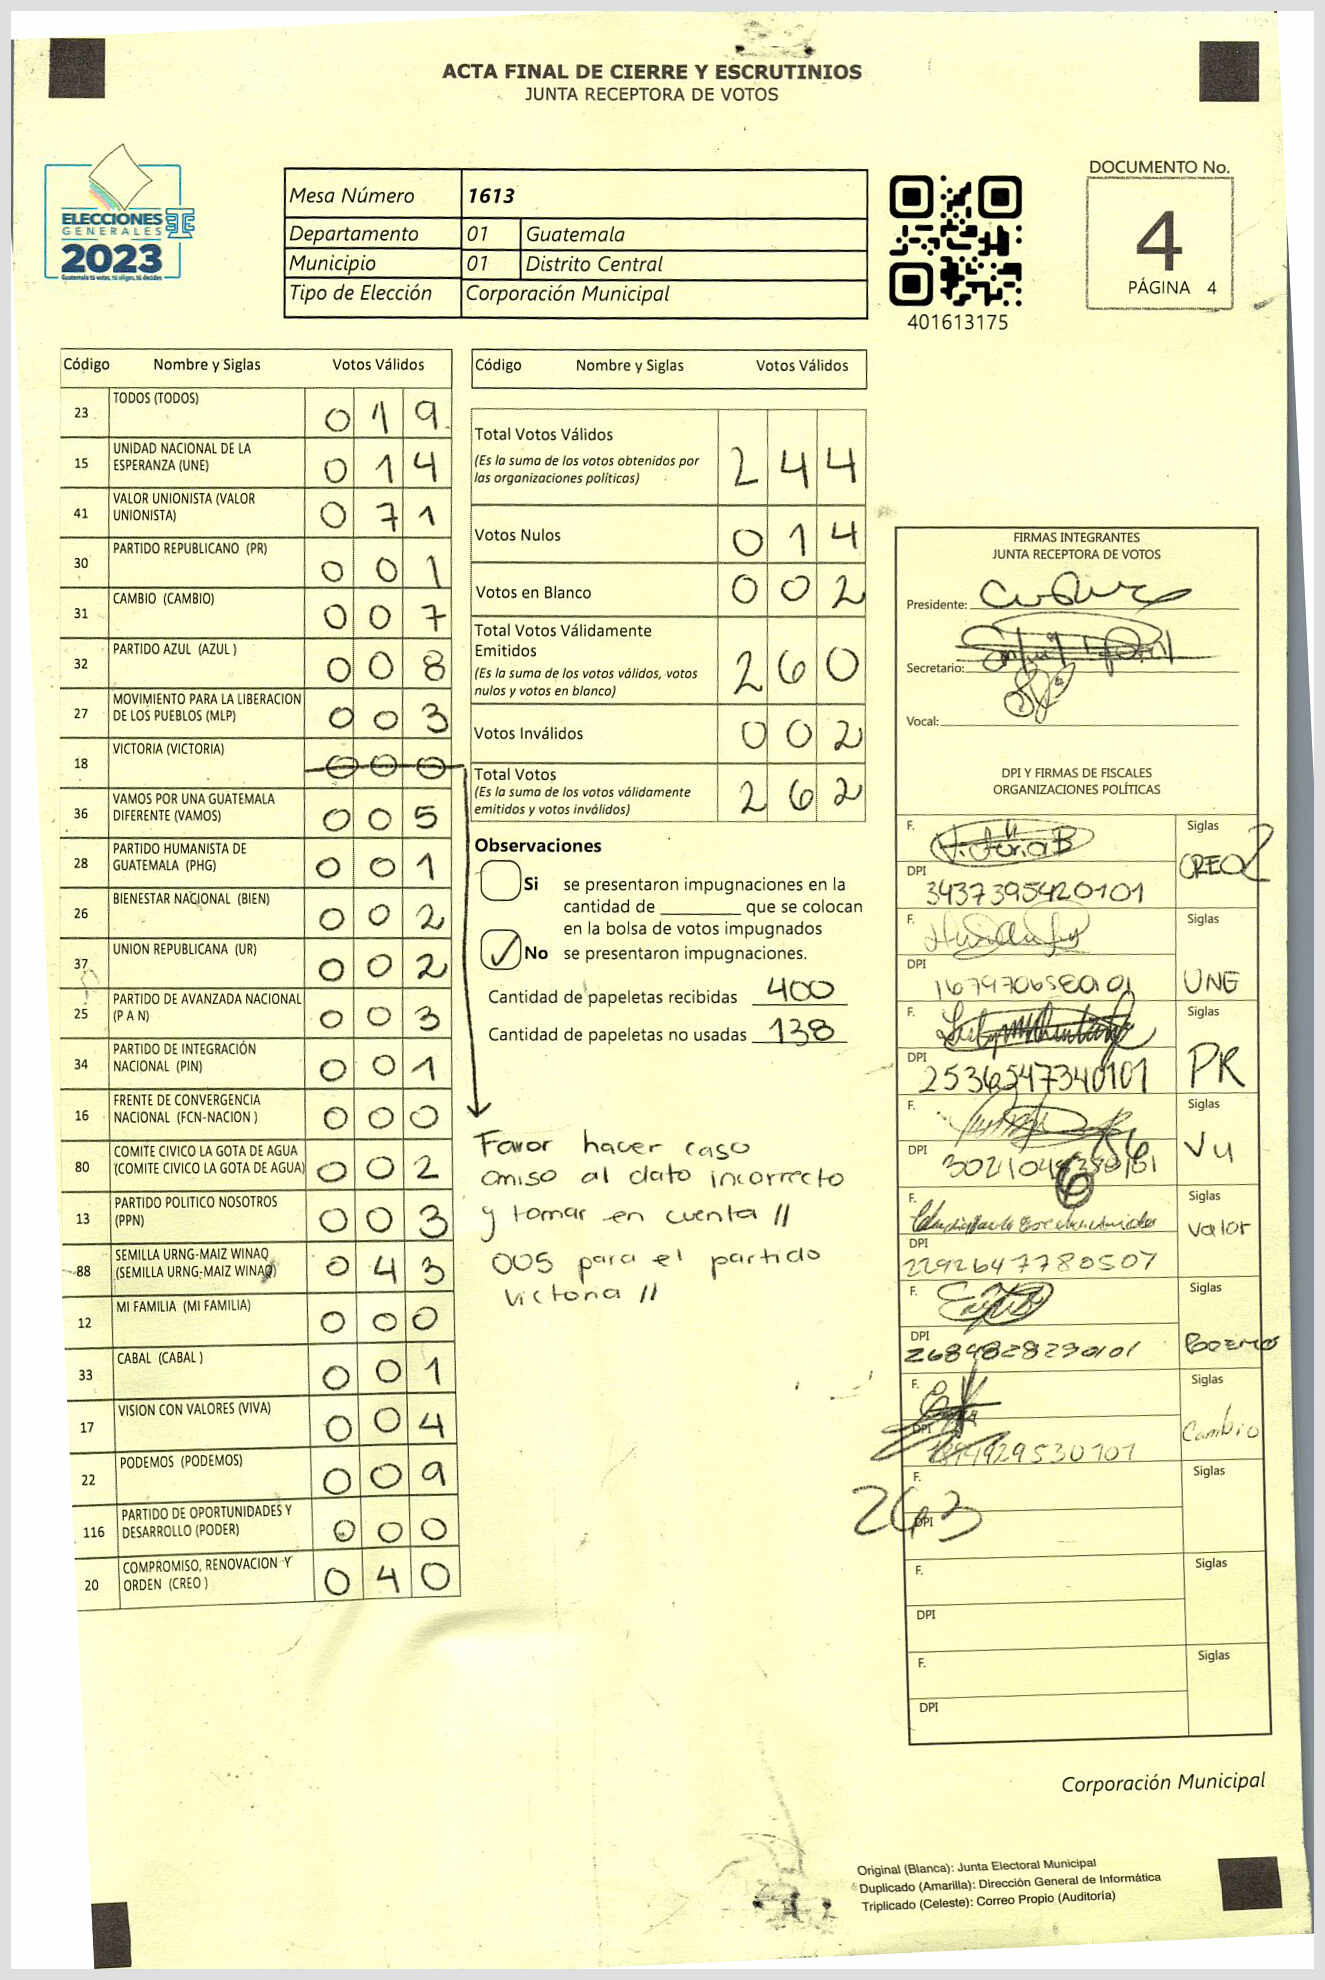 ACTA FINAL DE CIERRE Y ESCRUTINIOS
JUNTA RECEPTORA DE VOTOS
ELECCIONES
GENERALES
2023
Guatemala tú votas, tú eliges, tú decides
Mesa Número 1613
Departamento 01 Guatemala
Municipio 01 Distrito Central
Tipo de Elección Corporación Municipal
401613175
DOCUMENTO No.
4
PÁGINA 4
Código Nombre y Siglas Votos Válidos
23 TODOS (TODOS) 0 1 9
15 UNIDAD NACIONAL DE LA ESPERANZA (UNE) 0 1 4
41 VALOR UNIONISTA (VALOR UNIONISTA) 0 7 1
30 PARTIDO REPUBLICANO (PR) 0 0 1
31 CAMBIO (CAMBIO) 0 0 7
32 PARTIDO AZUL (AZUL ) 0 0 8
27 MOVIMIENTO PARA LA LIBERACION DE LOS PUEBLOS (MLP) 0 0 3
18 VICTORIA (VICTORIA) 0 0 0
36 VAMOS POR UNA GUATEMALA DIFERENTE (VAMOS) 0 0 5
28 PARTIDO HUMANISTA DE GUATEMALA (PHG) 0 0 1
26 BIENESTAR NACIONAL (BIEN) 0 0 2
37 UNION REPUBLICANA (UR) 0 0 2
25 PARTIDO DE AVANZADA NACIONAL (P A N) 0 0 3
34 PARTIDO DE INTEGRACIÓN NACIONAL (PIN) 0 0 1
16 FRENTE DE CONVERGENCIA NACIONAL (FCN-NACION ) 0 0 0
80 COMITE CIVICO LA GOTA DE AGUA (COMITE CIVICO LA GOTA DE AGUA) 0 0 2
13 PARTIDO POLITICO NOSOTROS (PPN) 0 0 3
88 SEMILLA URNG-MAIZ WINAQ (SEMILLA URNG-MAIZ WINAQ) 0 4 3
12 MI FAMILIA (MI FAMILIA) 0 0 0
33 CABAL (CABAL ) 0 0 1
17 VISION CON VALORES (VIVA) 0 0 4
22 PODEMOS (PODEMOS) 0 0 9
116 PARTIDO DE OPORTUNIDADES Y DESARROLLO (PODER) 0 0 0
20 COMPROMISO, RENOVACION Y ORDEN (CREO ) 0 4 0
Código Nombre y Siglas Votos Válidos
Total Votos Válidos 2 4 4
(Es la suma de los votos obtenidos por
las organizaciones políticas)
Votos Nulos 0 1 4
Votos en Blanco 0 0 2
Total Votos Válidamente
Emitidos 2 6 0
(Es la suma de los votos válidos, votos
nulos y votos en blanco)
Votos Inválidos 0 0 2
Total Votos 2 6 2
(Es la suma de los votos válidamente
emitidos y votos inválidos)
Observaciones
Si se presentaron impugnaciones en la
cantidad de ________ que se colocan
en la bolsa de votos impugnados
No se presentaron impugnaciones.
Cantidad de papeletas recibidas 400
Cantidad de papeletas no usadas 138
Favor hacer caso
omiso al dato incorrecto
y tomar en cuenta //
005 para el partido
Victoria //
FIRMAS INTEGRANTES
JUNTA RECEPTORA DE VOTOS
Presidente:
Secretario:
Vocal:
DPI Y FIRMAS DE FISCALES
ORGANIZACIONES POLÍTICAS
F. Victoria B Siglas
CREO
DPI
3437395420101
F. Siglas
DPI
UNE
F. Siglas
DPI
2536547340101 PR
F. Siglas
DPI
VU
F. Siglas
Valor
DPI
2292647780507
F. Siglas
DPI
2684828290101 PODEMOS
F. Siglas
DPI
Cambio
F. Siglas
DPI
263
F. Siglas
DPI
F. Siglas
DPI
Corporación Municipal
Original (Blanca): Junta Electoral Municipal
Duplicado (Amarilla): Dirección General de Informática
Triplicado (Celeste): Correo Propio (Auditoría)